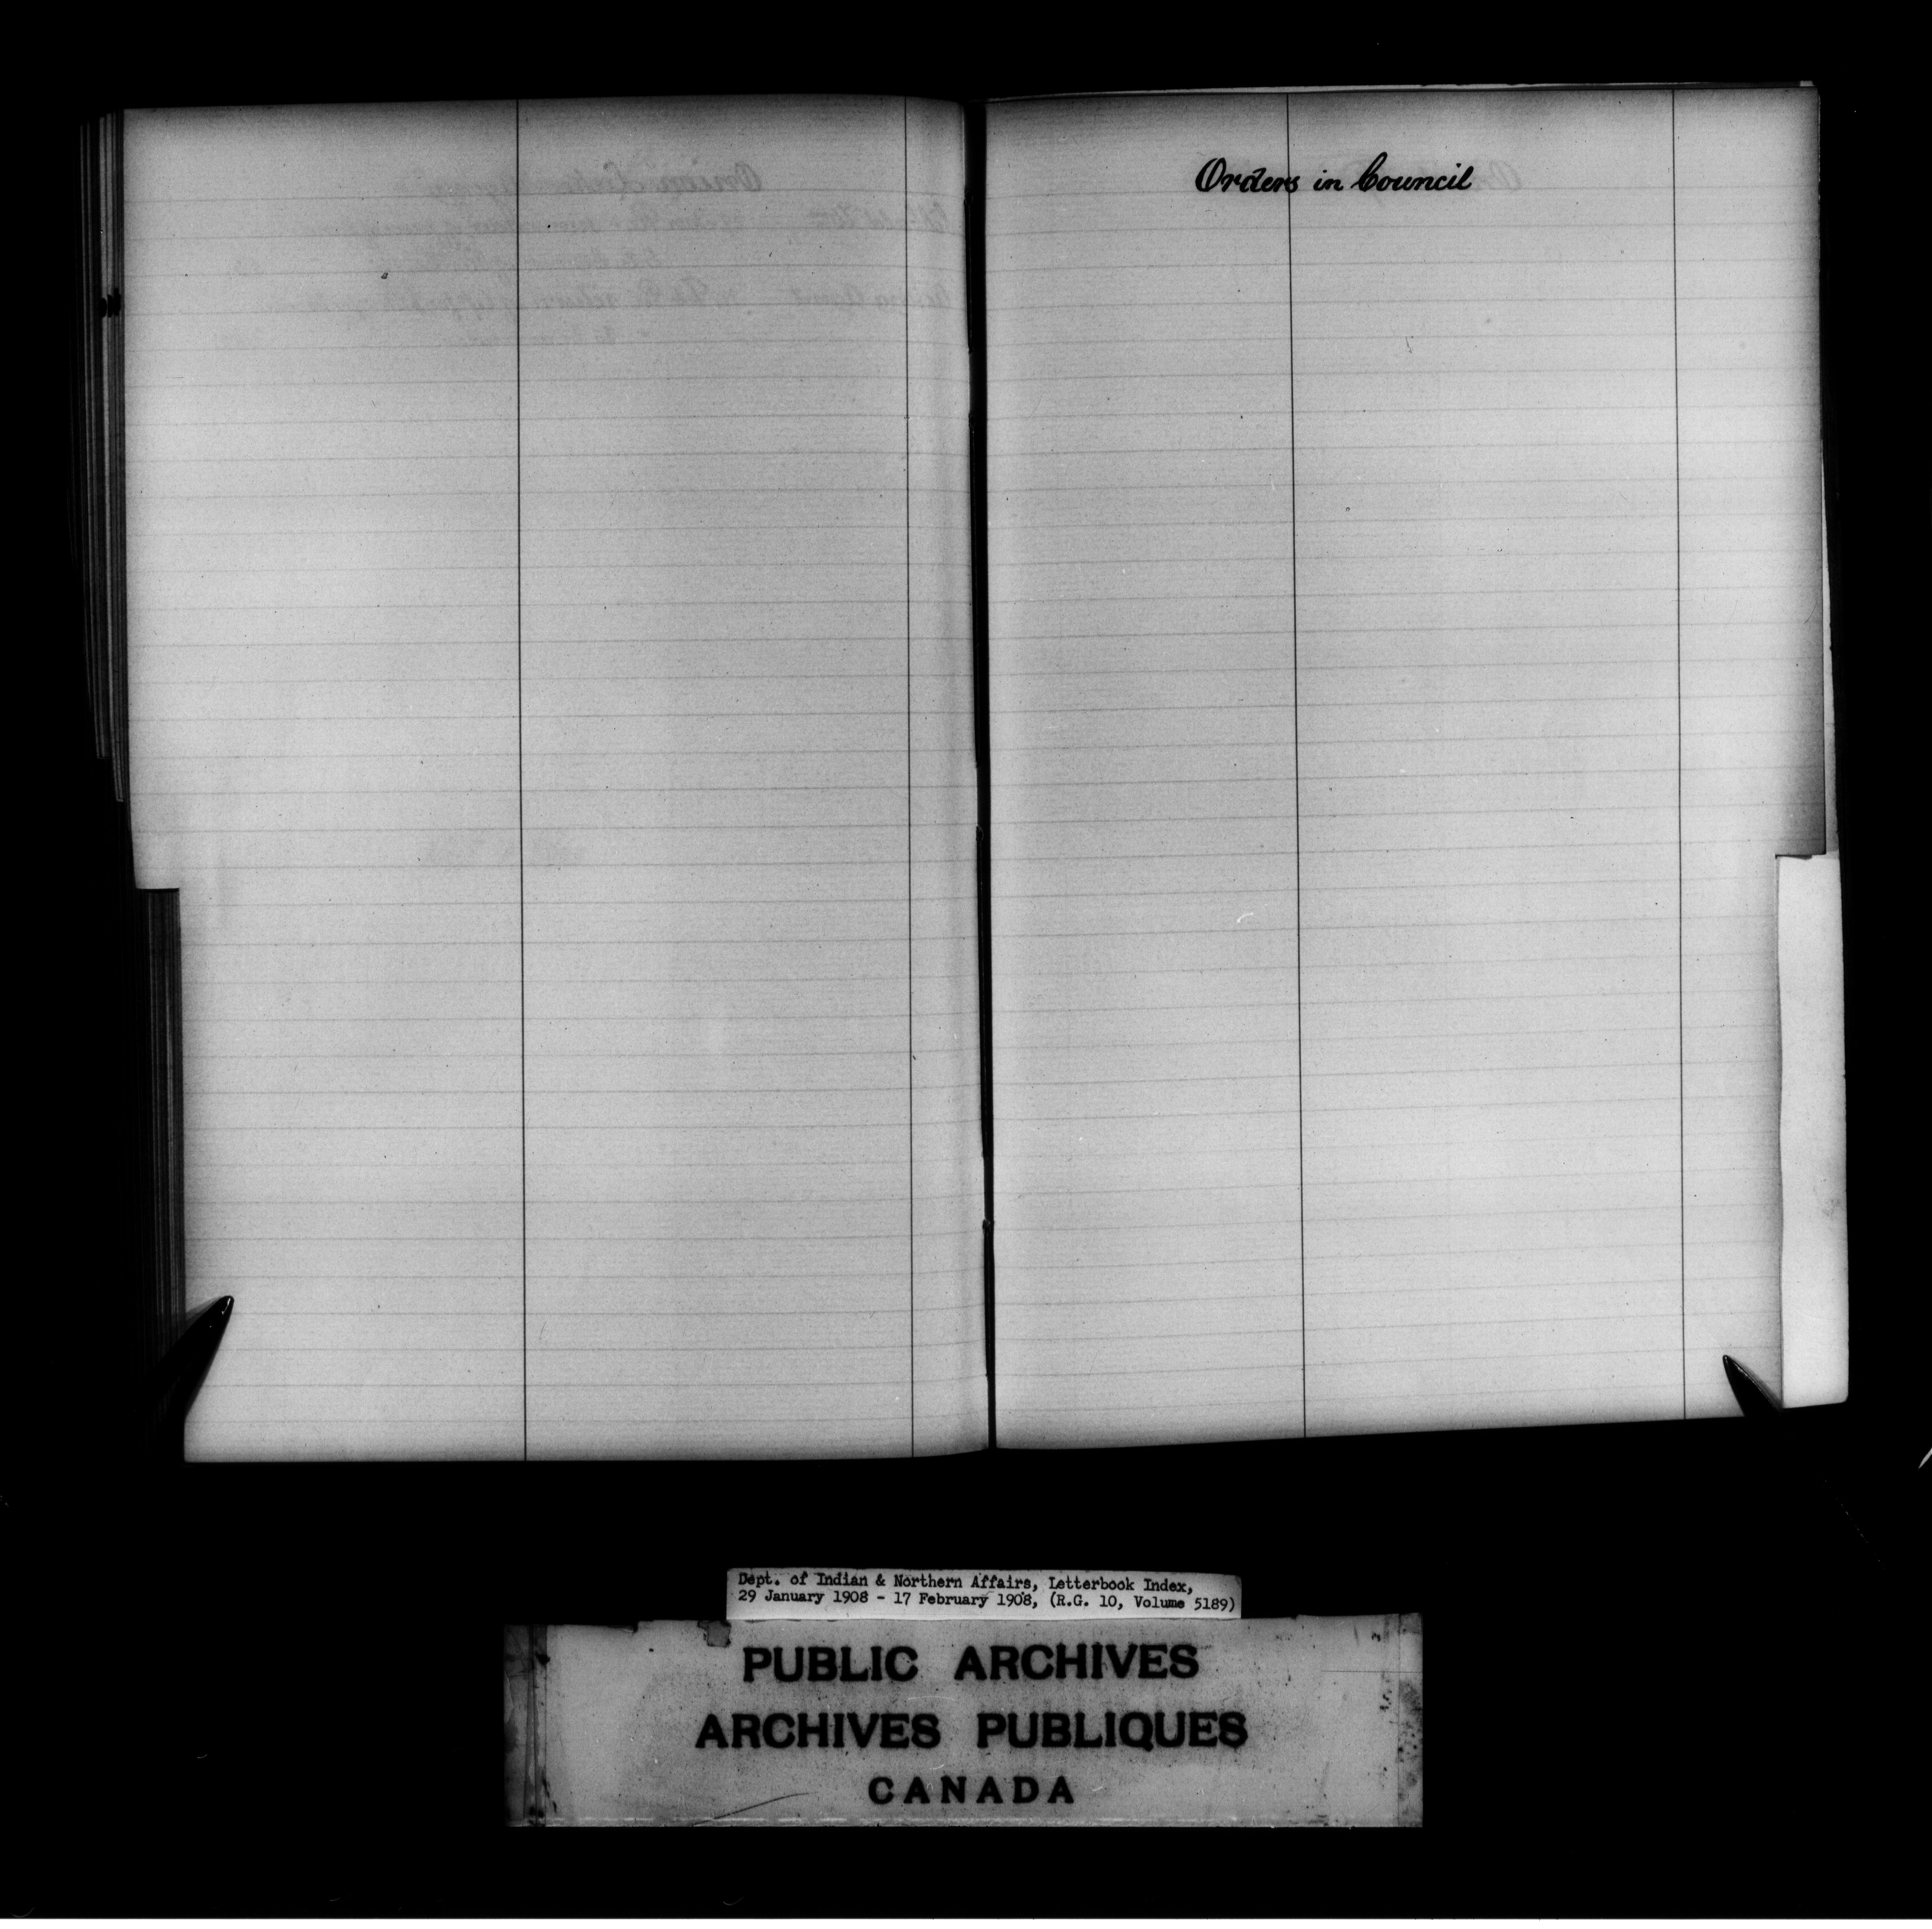 Orders in Council
Dept. of Indian & Northern Affairs, Letterbook Index,
29 January 1908 - 17 February 1908, (R.G. 10, Volume 5189)
PUBLIC ARCHIVES
ARCHIVES PUBLIQUES
CANADA